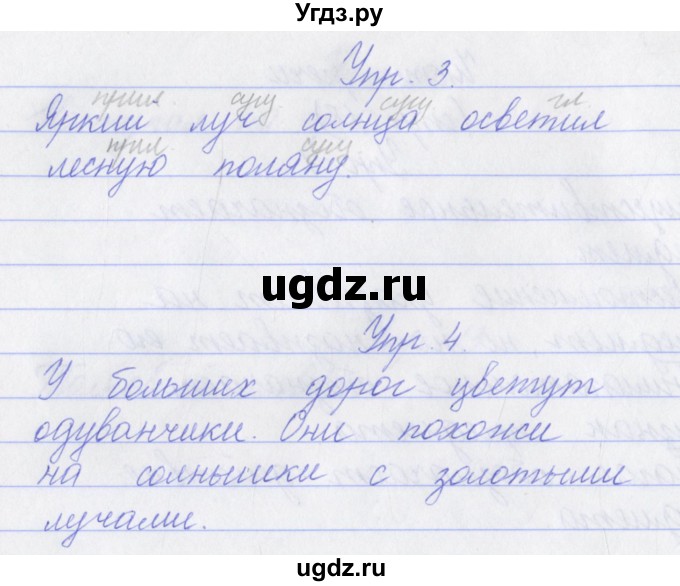 Угдз.ру
Упр. 3.
прил. сущ сущ гл.
Яркий луч солнца осветил
прил. сущ.
лесную поляну.
ugdz.ru
Упр. 4.
У больших дорог цветут
одуванчики. Они похожи
на солнышки с золотыми
лучами.
ugdz.ru